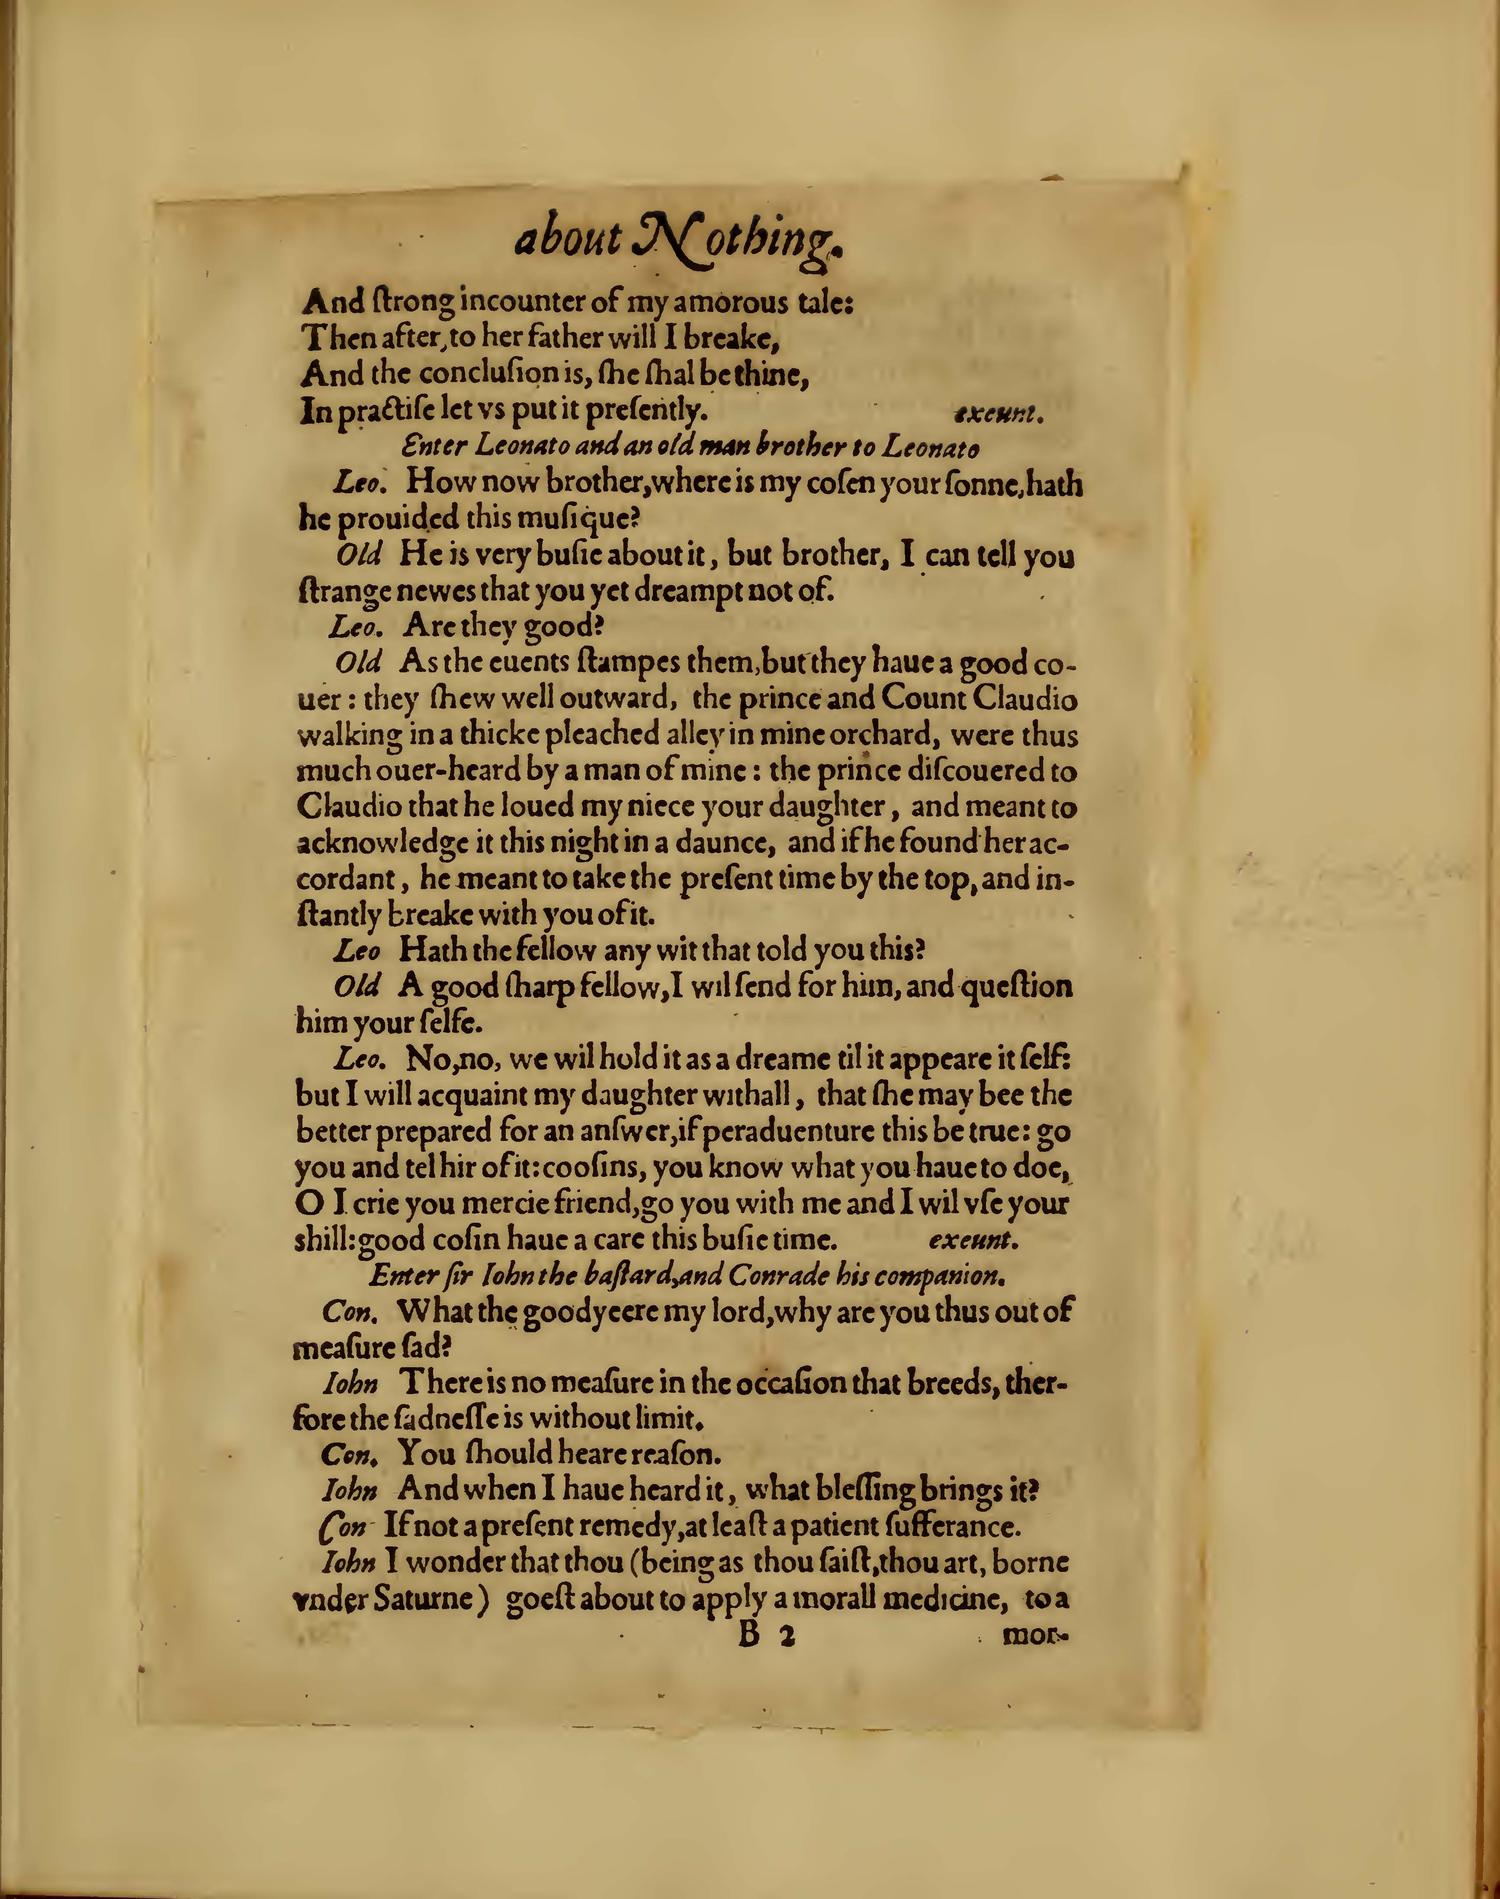 about Nothing.
And ſtrong incounter of my amorous tale:
Then after, to her father will I breake,
And the concluſion is, ſhe ſhal be thine,
In practiſe let vs put it preſently. exeunt.
Enter Leonato and an old man brother to Leonato
Leo. How now brother, where is my coſen your ſonne, hath
he prouided this muſique?
Old He is very buſie about it, but brother, I can tell you
ſtrange newes that you yet dreampt not of.
Leo. Are they good?
Old As the euents ſtampes them, but they haue a good co-
uer: they ſhew well outward, the prince and Count Claudio
walking in a thicke pleached alley in mine orchard, were thus
much ouer-heard by a man of mine: the prince diſcouered to
Claudio that he loued my niece your daughter, and meant to
acknowledge it this night in a daunce, and if he found her ac-
cordant, he meant to take the preſent time by the top, and in-
ſtantly breake with you of it.
Leo Hath the fellow any wit that told you this?
Old A good ſharp fellow, I wil ſend for him, and queſtion
him your ſelfe.
Leo. No, no, we wil hold it as a dreame til it appeare it ſelf:
but I will acquaint my daughter withall, that ſhe may bee the
better prepared for an anſwer, if peraduenture this be true: go
you and tel hir of it: cooſins, you know what you haue to doe,
O I crie you mercie friend, go you with me and I wil vſe your
shill: good coſin haue a care this buſie time. exeunt.
Enter ſir Iohn the baſtard, and Conrade his companion.
Con. What the goodyeere my lord, why are you thus out of
meaſure ſad?
Iohn There is no meaſure in the occaſion that breeds, ther-
fore the ſadneſſe is without limit.
Con. You ſhould heare reaſon.
Iohn And when I haue heard it, what bleſſing brings it?
Con If not a preſent remedy, at leaſt a patient ſufferance.
Iohn I wonder that thou (being as thou ſaiſt, thou art, borne
vnder Saturne) goeſt about to apply a morall medicine, to a
B 2 mor-